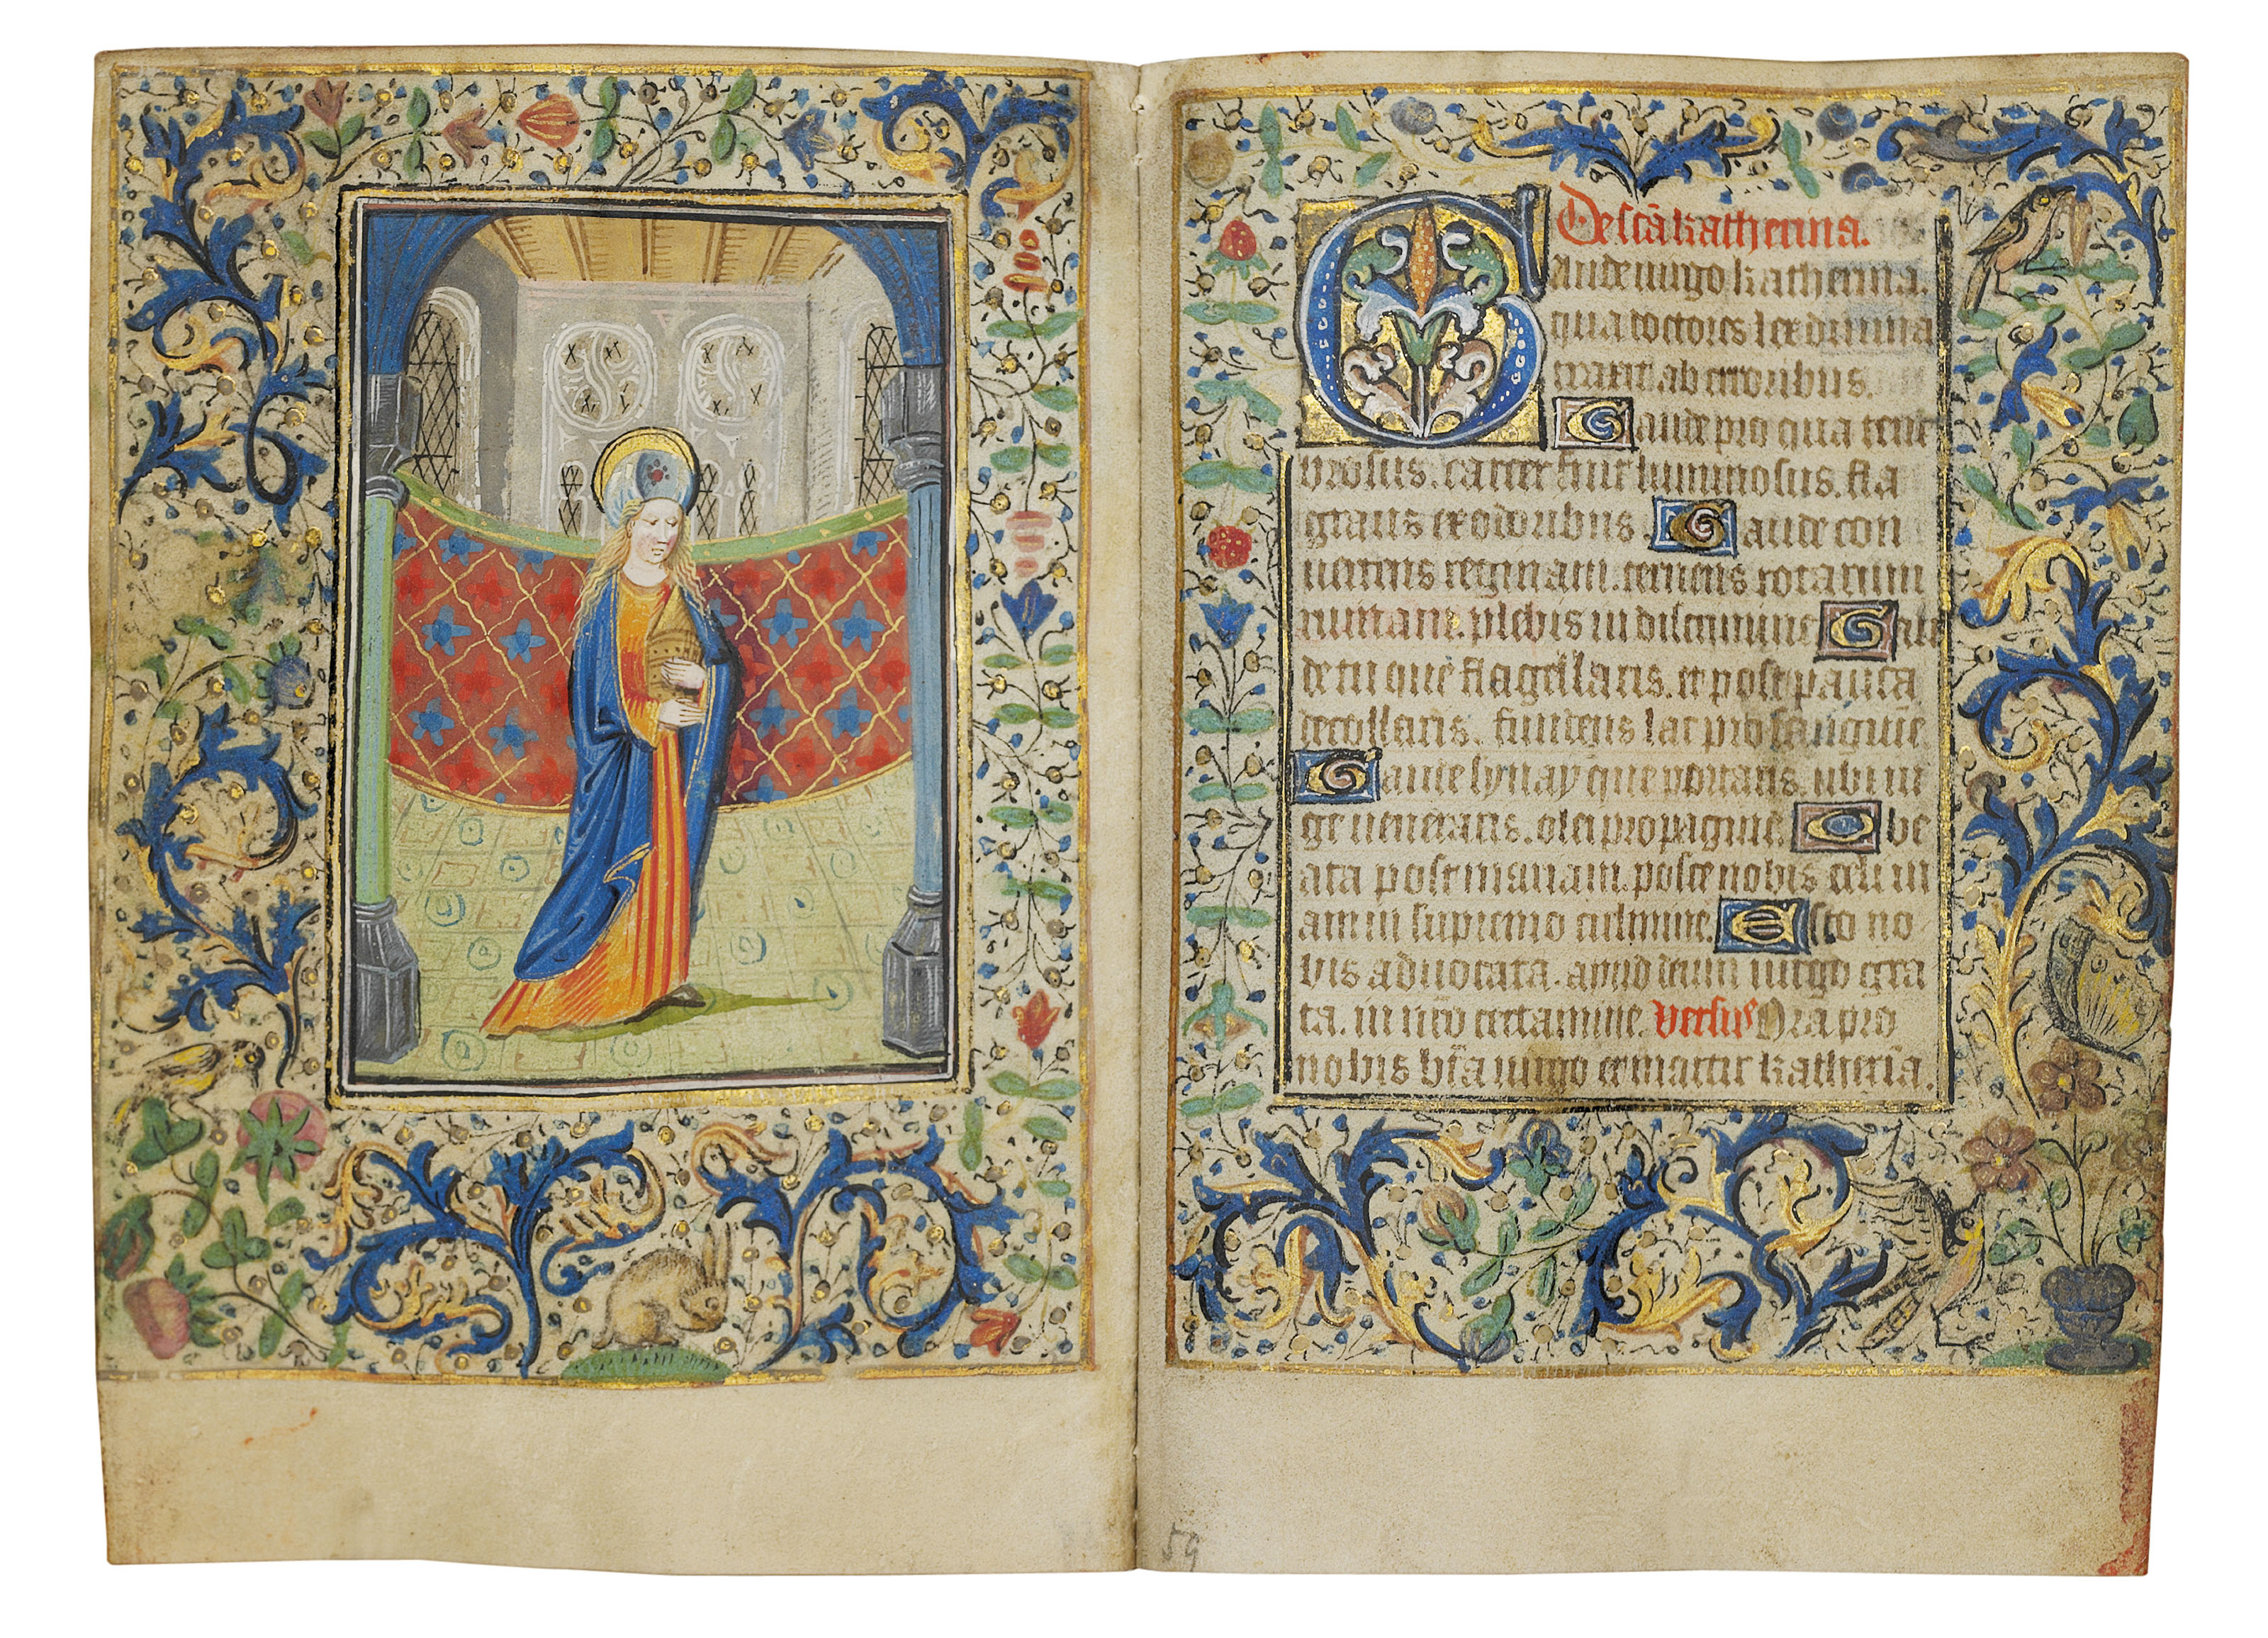 De scā katherina.
Gaude uirgo katherina.
qua doctores lex diuina
traxit ab erroribus.
Gaude pro qua tene
brosus. carcer fuit luminosus. fla
grans ex odoribus. Gaude con
uertens reginam. cernens rotarum
ruinam. plebis in discrimine Gau
de tu que flagellaris. et post pauca
decollaris. fundens lac pro sanguīe
Gaude synay que portaris. ubi iu
ge ueneraris. olei propagine. O be
ata post mariam. posce nobis ueniam
am in supremo culmine. Esto no
bis aduocata. apud deum uirgo gra
ta. in nr̄o certamine. Versus Ora pro
nobis bt̄a uirgo et martir katherīa.
59